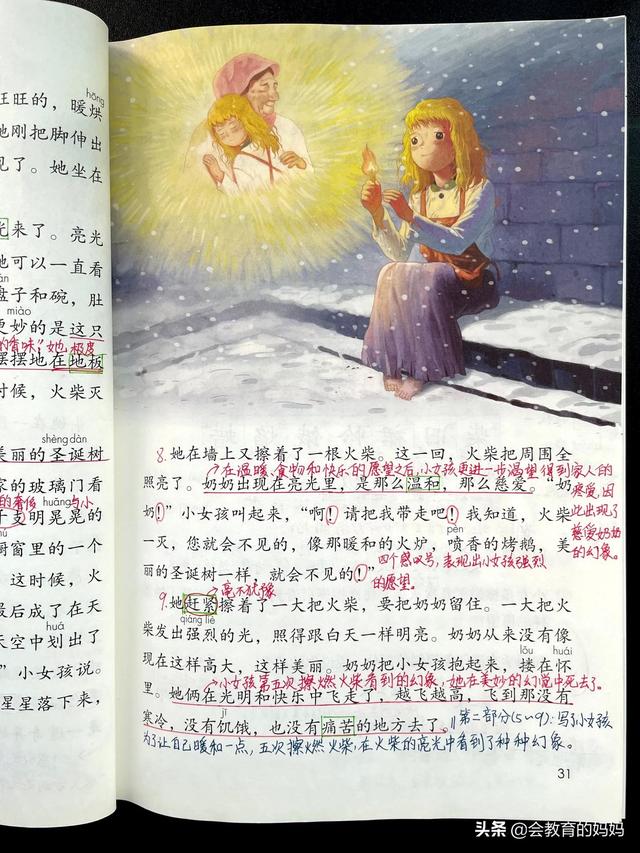 hōng
旺旺的，暖烘
她刚把脚伸出
见了。她坐在
光来了。亮光
她可以一直看
盘子和碗，肚
miào
更妙的是这只
的香味”她，极度
摆摆地在地板
时候，火柴灭
shèng dàn
美丽的圣诞树
家的玻璃门看
的奢侈 huǎng 与小
千支明晃晃的
橱窗里的一个
这时候，火
最后成了在天
huá
天空中划出了
”小女孩说。
星星落下来，
8.她在墙上又擦着了一根火柴。这一回，火柴把周围全
在温暖、食物和快乐的愿望之后，小女孩更进一步渴望得到家人的
疼爱，因
此出现了
慈爱奶奶
的幻象。
照亮了。奶奶出现在亮光里，是那么温和，那么慈爱。“奶
奶！”小女孩叫起来，“啊！请把我带走吧！我知道，火柴
一灭，您就会不见的，像那暖和的火炉，喷香的烤鹅，美
pèn
丽的圣诞树一样，就会不见的！”
四个感叹号，表现出小女孩强烈
的愿望。
毫不犹豫
9.她赶紧擦着了一大把火柴，要把奶奶留住。一大把火
qiáng liè
柴发出强烈的光，照得跟白天一样明亮。奶奶从来没有像
lǒu huái
现在这样高大，这样美丽。奶奶把小女孩抱起来，搂在怀
小女孩第五次擦燃火柴看到的幻象，她在美妙的幻觉中死去了。
里。她俩在光明和快乐中飞走了，越飞越高，飞到那没有
jī
寒冷，没有饥饿，也没有痛苦的地方去了。
第二部分(5~9)：写小女孩
为了让自己暖和一点，五次擦燃火柴，在火柴的亮光中看到了种种幻象。
31
头条 @会教育的妈妈